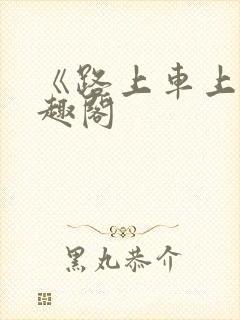 《路上車上
趣閣
黑丸恭介